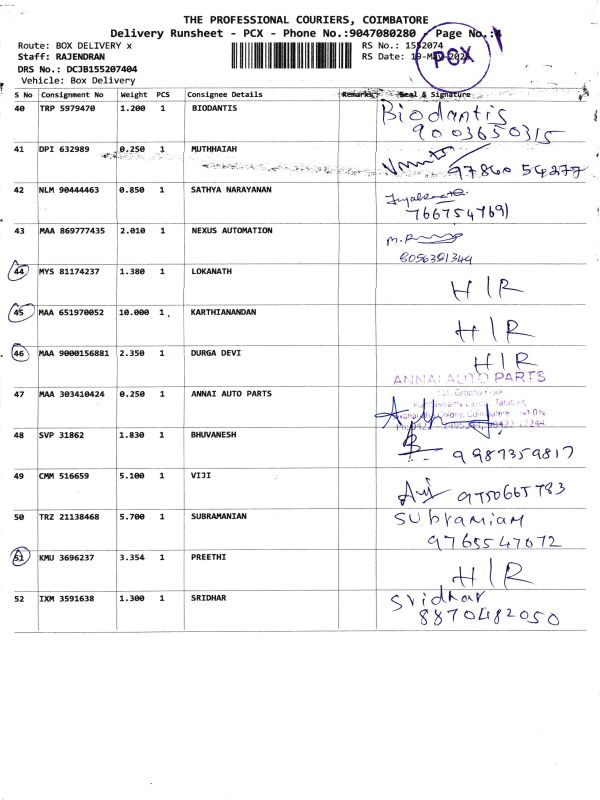 THE PROFESSIONAL COURIERS, COIMBATORE
Delivery Runsheet - PCX - Phone No.:9047080280 - Page No.:4
Route: BOX DELIVERY x RS No.: 1552074
Staff: RAJENDRAN RS Date: 19-May-202
PCX
DRS No.: DCJB155207404
Vehicle: Box Delivery
S No Consignment No Weight PCS Consignee Details Remarks Seal & Signature
40 TRP 5979470 1.200 1 BIODANTIS Biodantis
9003650315
41 DPI 632989 0.250 1 MUTHHAIAH
97860 54277
42 NLM 90444463 0.850 1 SATHYA NARAYANAN
7667547691
43 MAA 869777435 2.010 1 NEXUS AUTOMATION
8056391349
44 MYS 81174237 1.380 1 LOKANATH H/R
45 MAA 651970052 10.000 1 KARTHIANANDAN H/R
46 MAA 9000156881 2.350 1 DURGA DEVI H/R
ANNAI AUTO PARTS
47 MAA 303410424 0.250 1 ANNAI AUTO PARTS
48 SVP 31862 1.830 1 BHUVANESH
9987359817
49 CMM 516659 5.100 1 VIJI
9750665783
50 TRZ 21138468 5.700 1 SUBRAMANIAN Subramiam
9765547072
51 KMU 3696237 3.354 1 PREETHI H/R
52 IXM 3591638 1.300 1 SRIDHAR Sridhar
8870482050